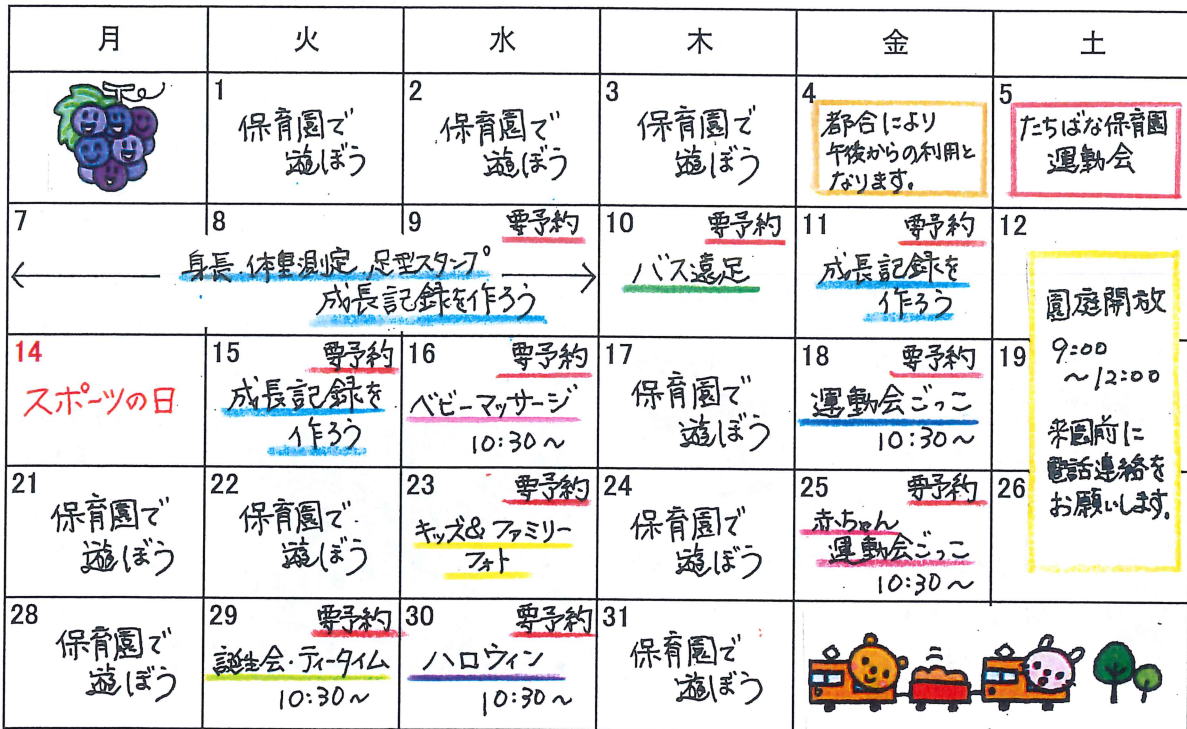 月 火 水 木 金 土
1
保育園で
遊ぼう
2
保育園で
遊ぼう
3
保育園で
遊ぼう
4
都合により
午後からの利用と
なります。
5
たちばな保育園
運動会
7
8
9
要予約
身長 体重測定 足型スタンプ
成長記録を作ろう
10
要予約
バス遠足
11
要予約
成長記録を
作ろう
12
園庭開放
9:00
～12:00
来園前に
電話連絡を
お願いします。
14
スポーツの日
15
要予約
成長記録を
作ろう
16
要予約
ベビーマッサージ
10:30～
17
保育園で
遊ぼう
18
要予約
運動会ごっこ
10:30～
19
21
保育園で
遊ぼう
22
保育園で
遊ぼう
23
要予約
キッズ&ファミリー
フォト
24
保育園で
遊ぼう
25
要予約
赤ちゃん
運動会ごっこ
10:30～
26
28
保育園で
遊ぼう
29
要予約
誕生会・ティータイム
10:30～
30
要予約
ハロウィン
10:30～
31
保育園で
遊ぼう